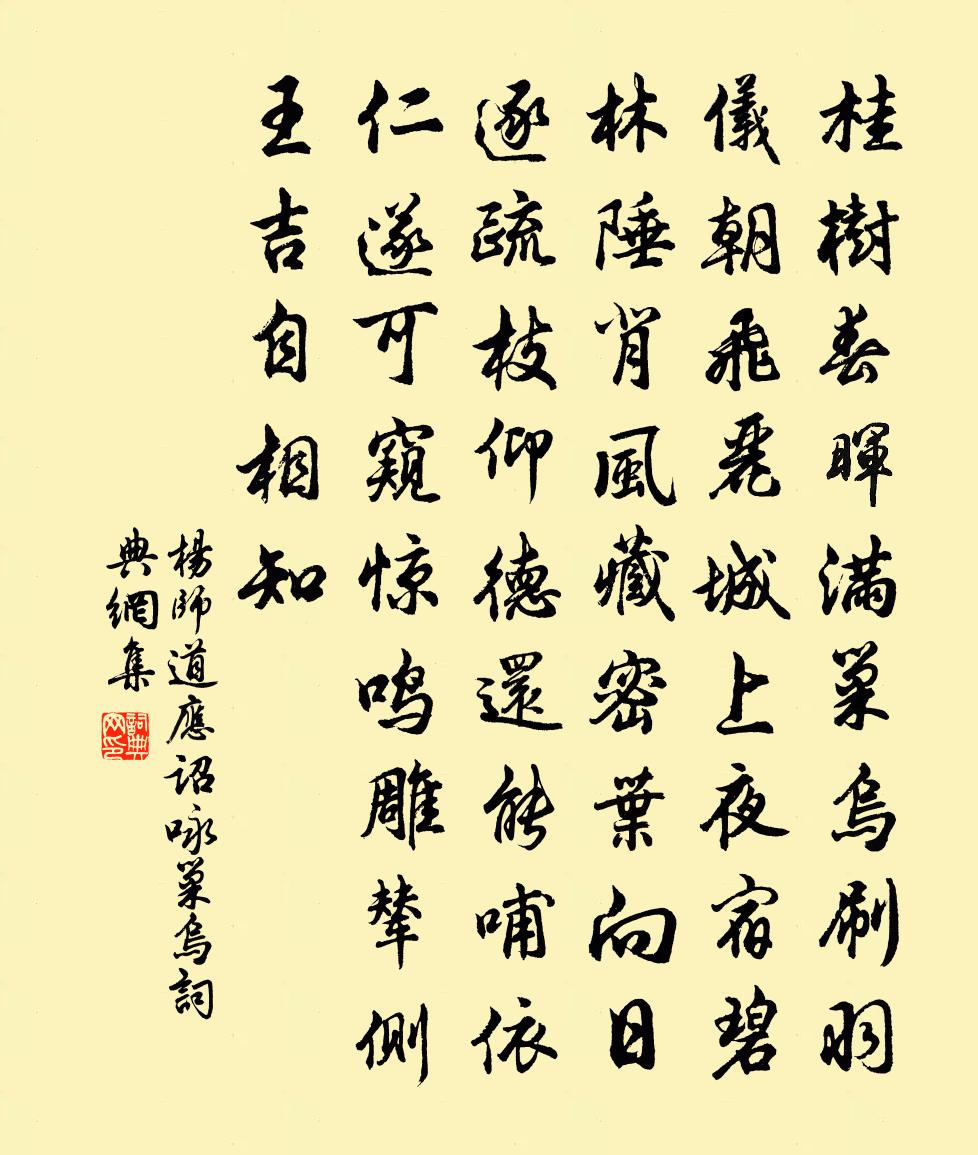 桂樹春暉滿巢烏刷羽
儀朝飛麗城上夜宿碧
林陲背風藏密葉向日
逐疏枝仰德還能哺依
仁遂可窺惊鸣雕輦側
王吉自相知
楊師道應詔咏巢烏詞
典網集
詞典
网印